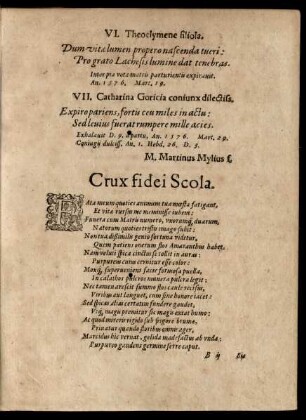 VI. Theoclymene filiola.
Dum vitæ lumen propero nascenda tueri:
Pro grato Lachesis lumine dat tenebras.
Inter pia vota matris parturientis expirauit.
An. 1576. Mart. 29.
VII. Catharina Goricia coniunx dilectiss.
Expiro pariens, fortis ceu miles in actu:
Sed leuius fuerat rumpere mille acies.
Exhalauit D. 9. à partu, An. 1576. Mart. 29.
Coniugij dulciss. An. 1. Hebd. 26. D. 5.
M. Martinus Mylius f.
Crux fidei Scola.
FAta meum quoties animum tua mœsta fatigant,
Et vitæ rursum me meminisse iubent:
Funera cum Matris numero, vnotamq́, duarum,
Natorum quoties tristis imago subit:
Non tua dissimilis genio fortuna videtur,
Quem patiens veterum flos Amaranthus habet,
Nam veluti spicæ similis se tollit in auras:
Purpureo cuius cernitur esse color:
Moxq́, superueniens facie formosa puella,
In calathos pulcros munera pulcra legit:
Nec tamen arescit summo flos carus victus,
Verbius aut languet, cum sine honore iacet:
Sed quasi alias certatim fundere gaudet,
Vtq́, magis premitur sic magis extat humo:
At quid moror rigido sub frigore bruma.
Priuatur quando floribus omnis ager,
Marcidus hic vernat, gelida madefactus ab vnda:
Purpureo gaudens germine ferre caput.
B ij